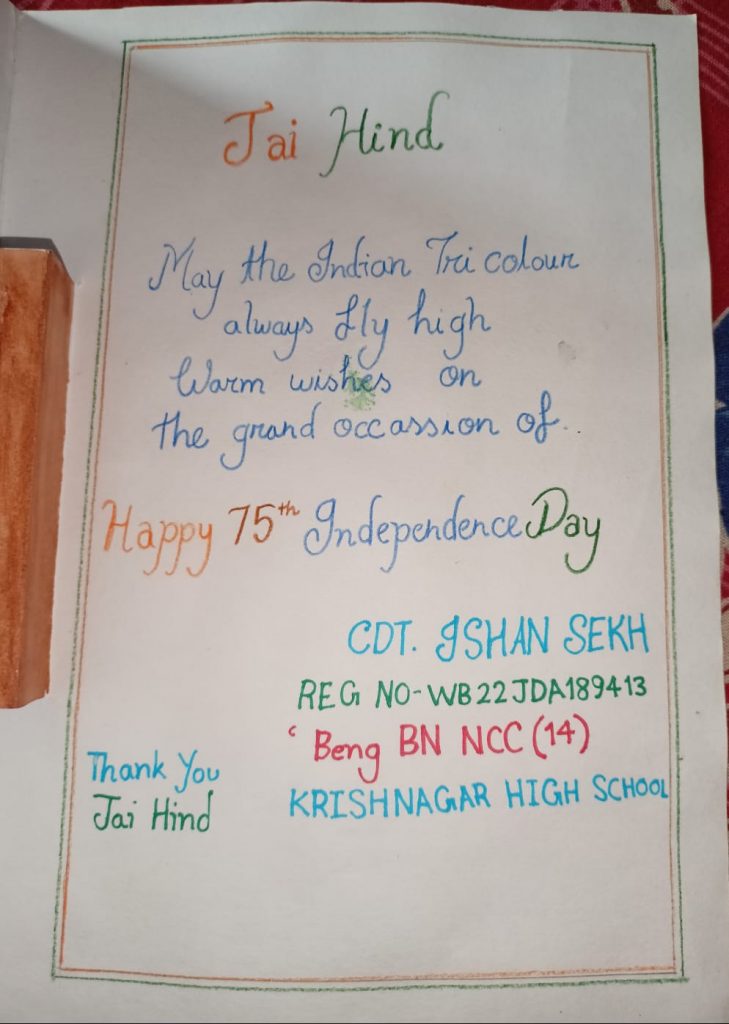 Jai Hind
May the Indian Tri colour
always fly high
Warm wishes on
the grand occassion of..
Happy 75th Independence Day
CDT. ISHAN SEKH
REG NO-WB22JDA189413
‘ Beng BN NCC (14)
KRISHNAGAR HIGH SCHOOL
Thank You
Jai Hind